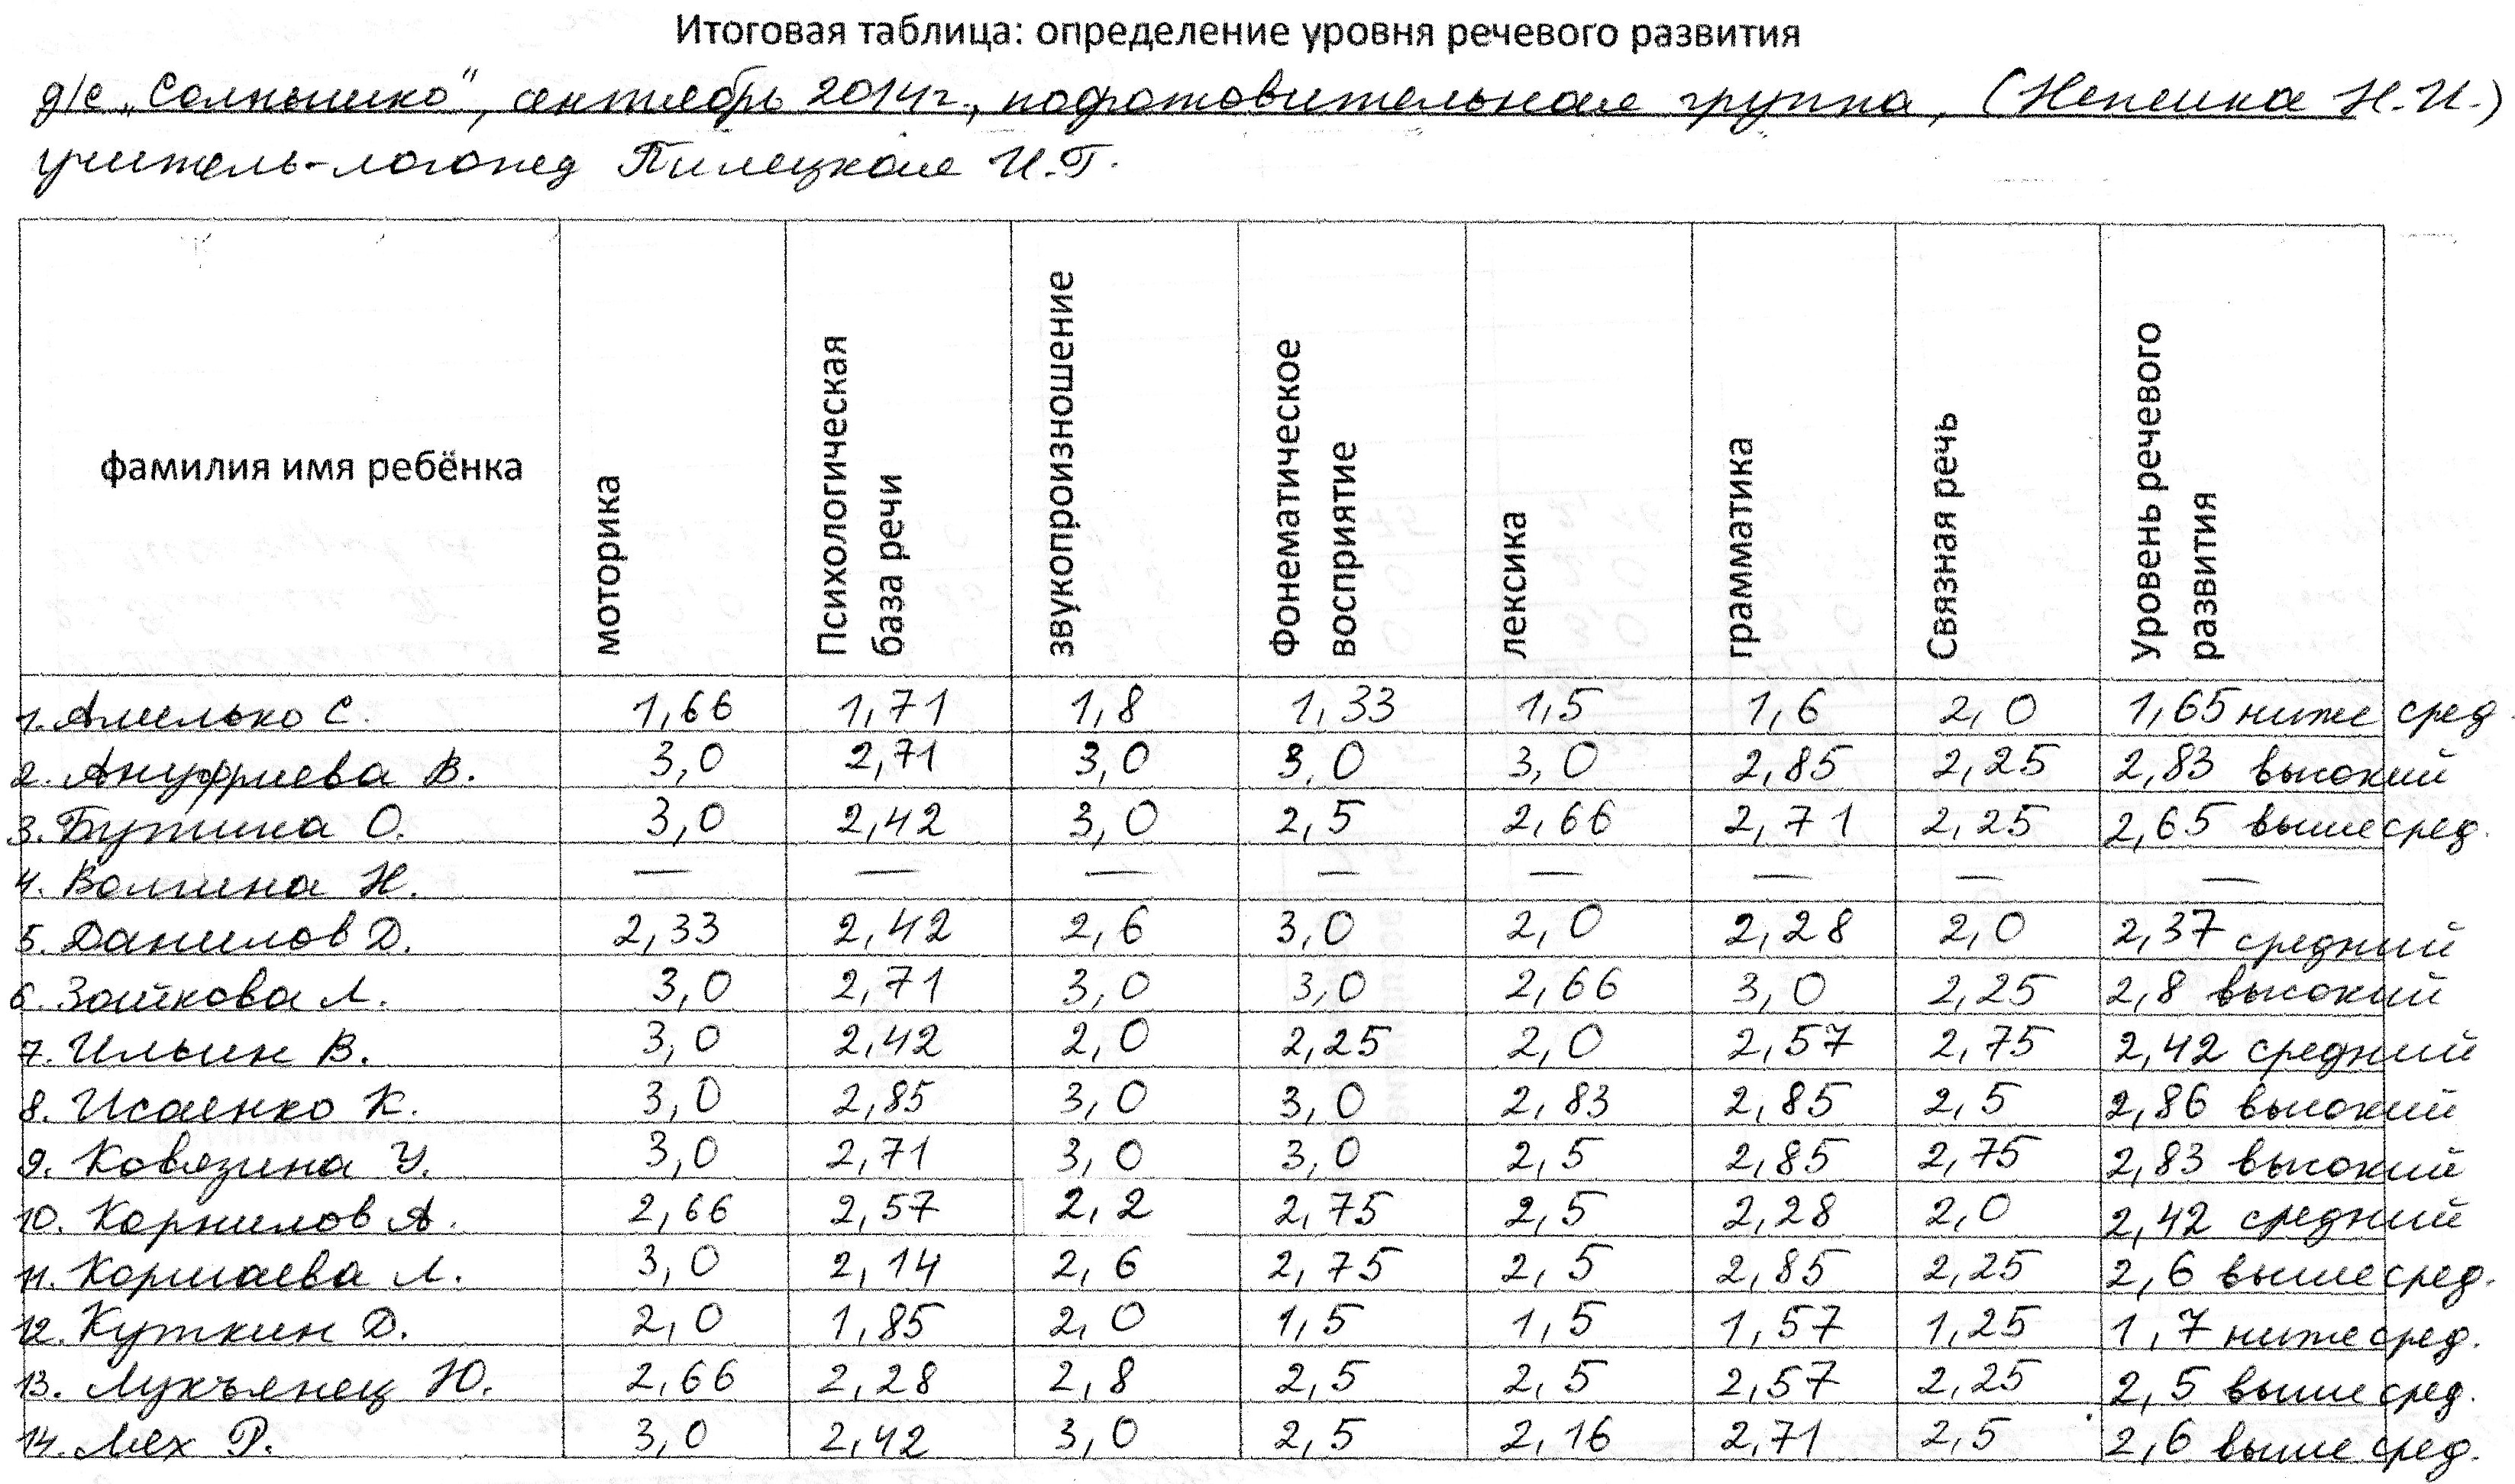 Итоговая таблица: определение уровня речевого развития
д/с „Солнышко", сентябрь 2014г., подготовительная группа, (Непеина Н.И.)
учитель-логопед Пилецкая И.Г.
фамилия имя ребёнка моторика Психологическая база речи звукопроизношение Фонематическое восприятие лексика грамматика Связная речь Уровень речевого развития
1. Амелько С. 1,66 1,71 1,8 1,33 1,5 1,6 2,0 1,65 ниже сред.
2. Ануфриева В. 3,0 2,71 3,0 3,0 3,0 2,85 2,25 2,83 высокий
3. Бутина О. 3,0 2,42 3,0 2,5 2,66 2,71 2,25 2,65 выше сред.
4. Волгина Н. — — — — — — — —
5. Данилов Д. 2,33 2,42 2,6 3,0 2,0 2,28 2,0 2,37 средний
6. Зайкова Л. 3,0 2,71 3,0 3,0 2,66 3,0 2,25 2,8 высокий
7. Ильин В. 3,0 2,42 2,0 2,25 2,0 2,57 2,75 2,42 средний
8. Исаенко К. 3,0 2,85 3,0 3,0 2,83 2,85 2,5 2,86 высокий
9. Ковязина У. 3,0 2,71 3,0 3,0 2,5 2,85 2,75 2,83 высокий
10. Корнилов А. 2,66 2,57 2,2 2,75 2,5 2,28 2,0 2,42 средний
11. Коршаева Л. 3,0 2,14 2,6 2,75 2,5 2,85 2,25 2,6 выше сред.
12. Куткин Д. 2,0 1,85 2,0 1,5 1,5 1,57 1,25 1,7 ниже сред.
13. Лукъянец Ю. 2,66 2,28 2,8 2,5 2,5 2,57 2,25 2,5 выше сред.
14. Мех Р. 3,0 2,42 3,0 2,5 2,16 2,71 2,5 2,6 выше сред.